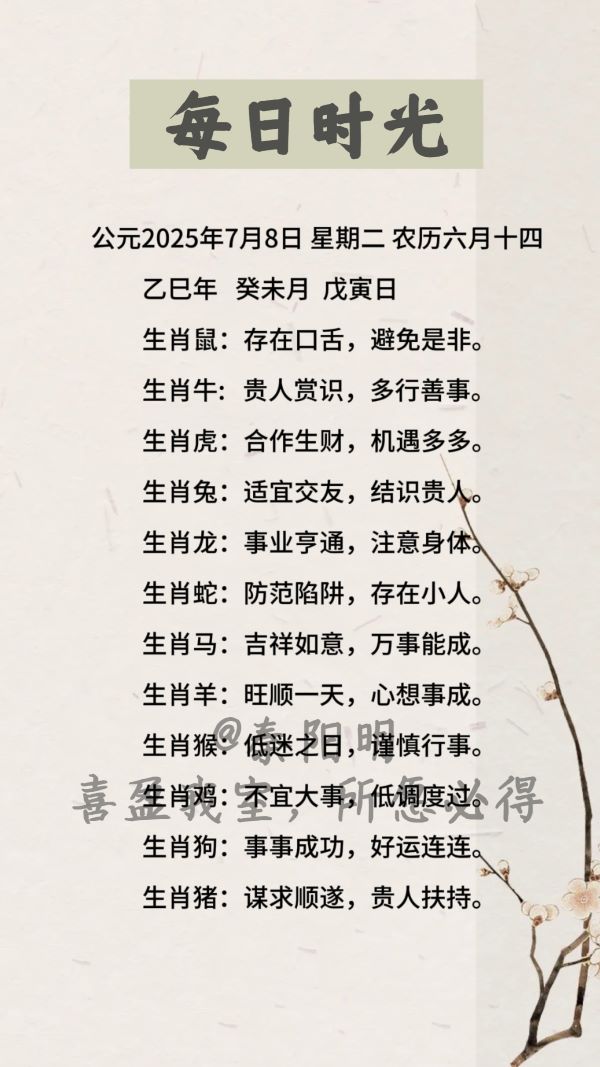 每日时光
公元2025年7月8日 星期二 农历六月十四
乙巳年 癸未月 戊寅日
生肖鼠：存在口舌，避免是非。
生肖牛：贵人赏识，多行善事。
生肖虎：合作生财，机遇多多。
生肖兔：适宜交友，结识贵人。
生肖龙：事业亨通，注意身体。
生肖蛇：防范陷阱，存在小人。
生肖马：吉祥如意，万事能成。
生肖羊：旺顺一天，心想事成。
@泰阳明
生肖猴：低迷之日，谨慎行事。
喜盈我室，所愿必得
生肖鸡：不宜大事，低调度过。
生肖狗：事事成功，好运连连。
生肖猪：谋求顺遂，贵人扶持。